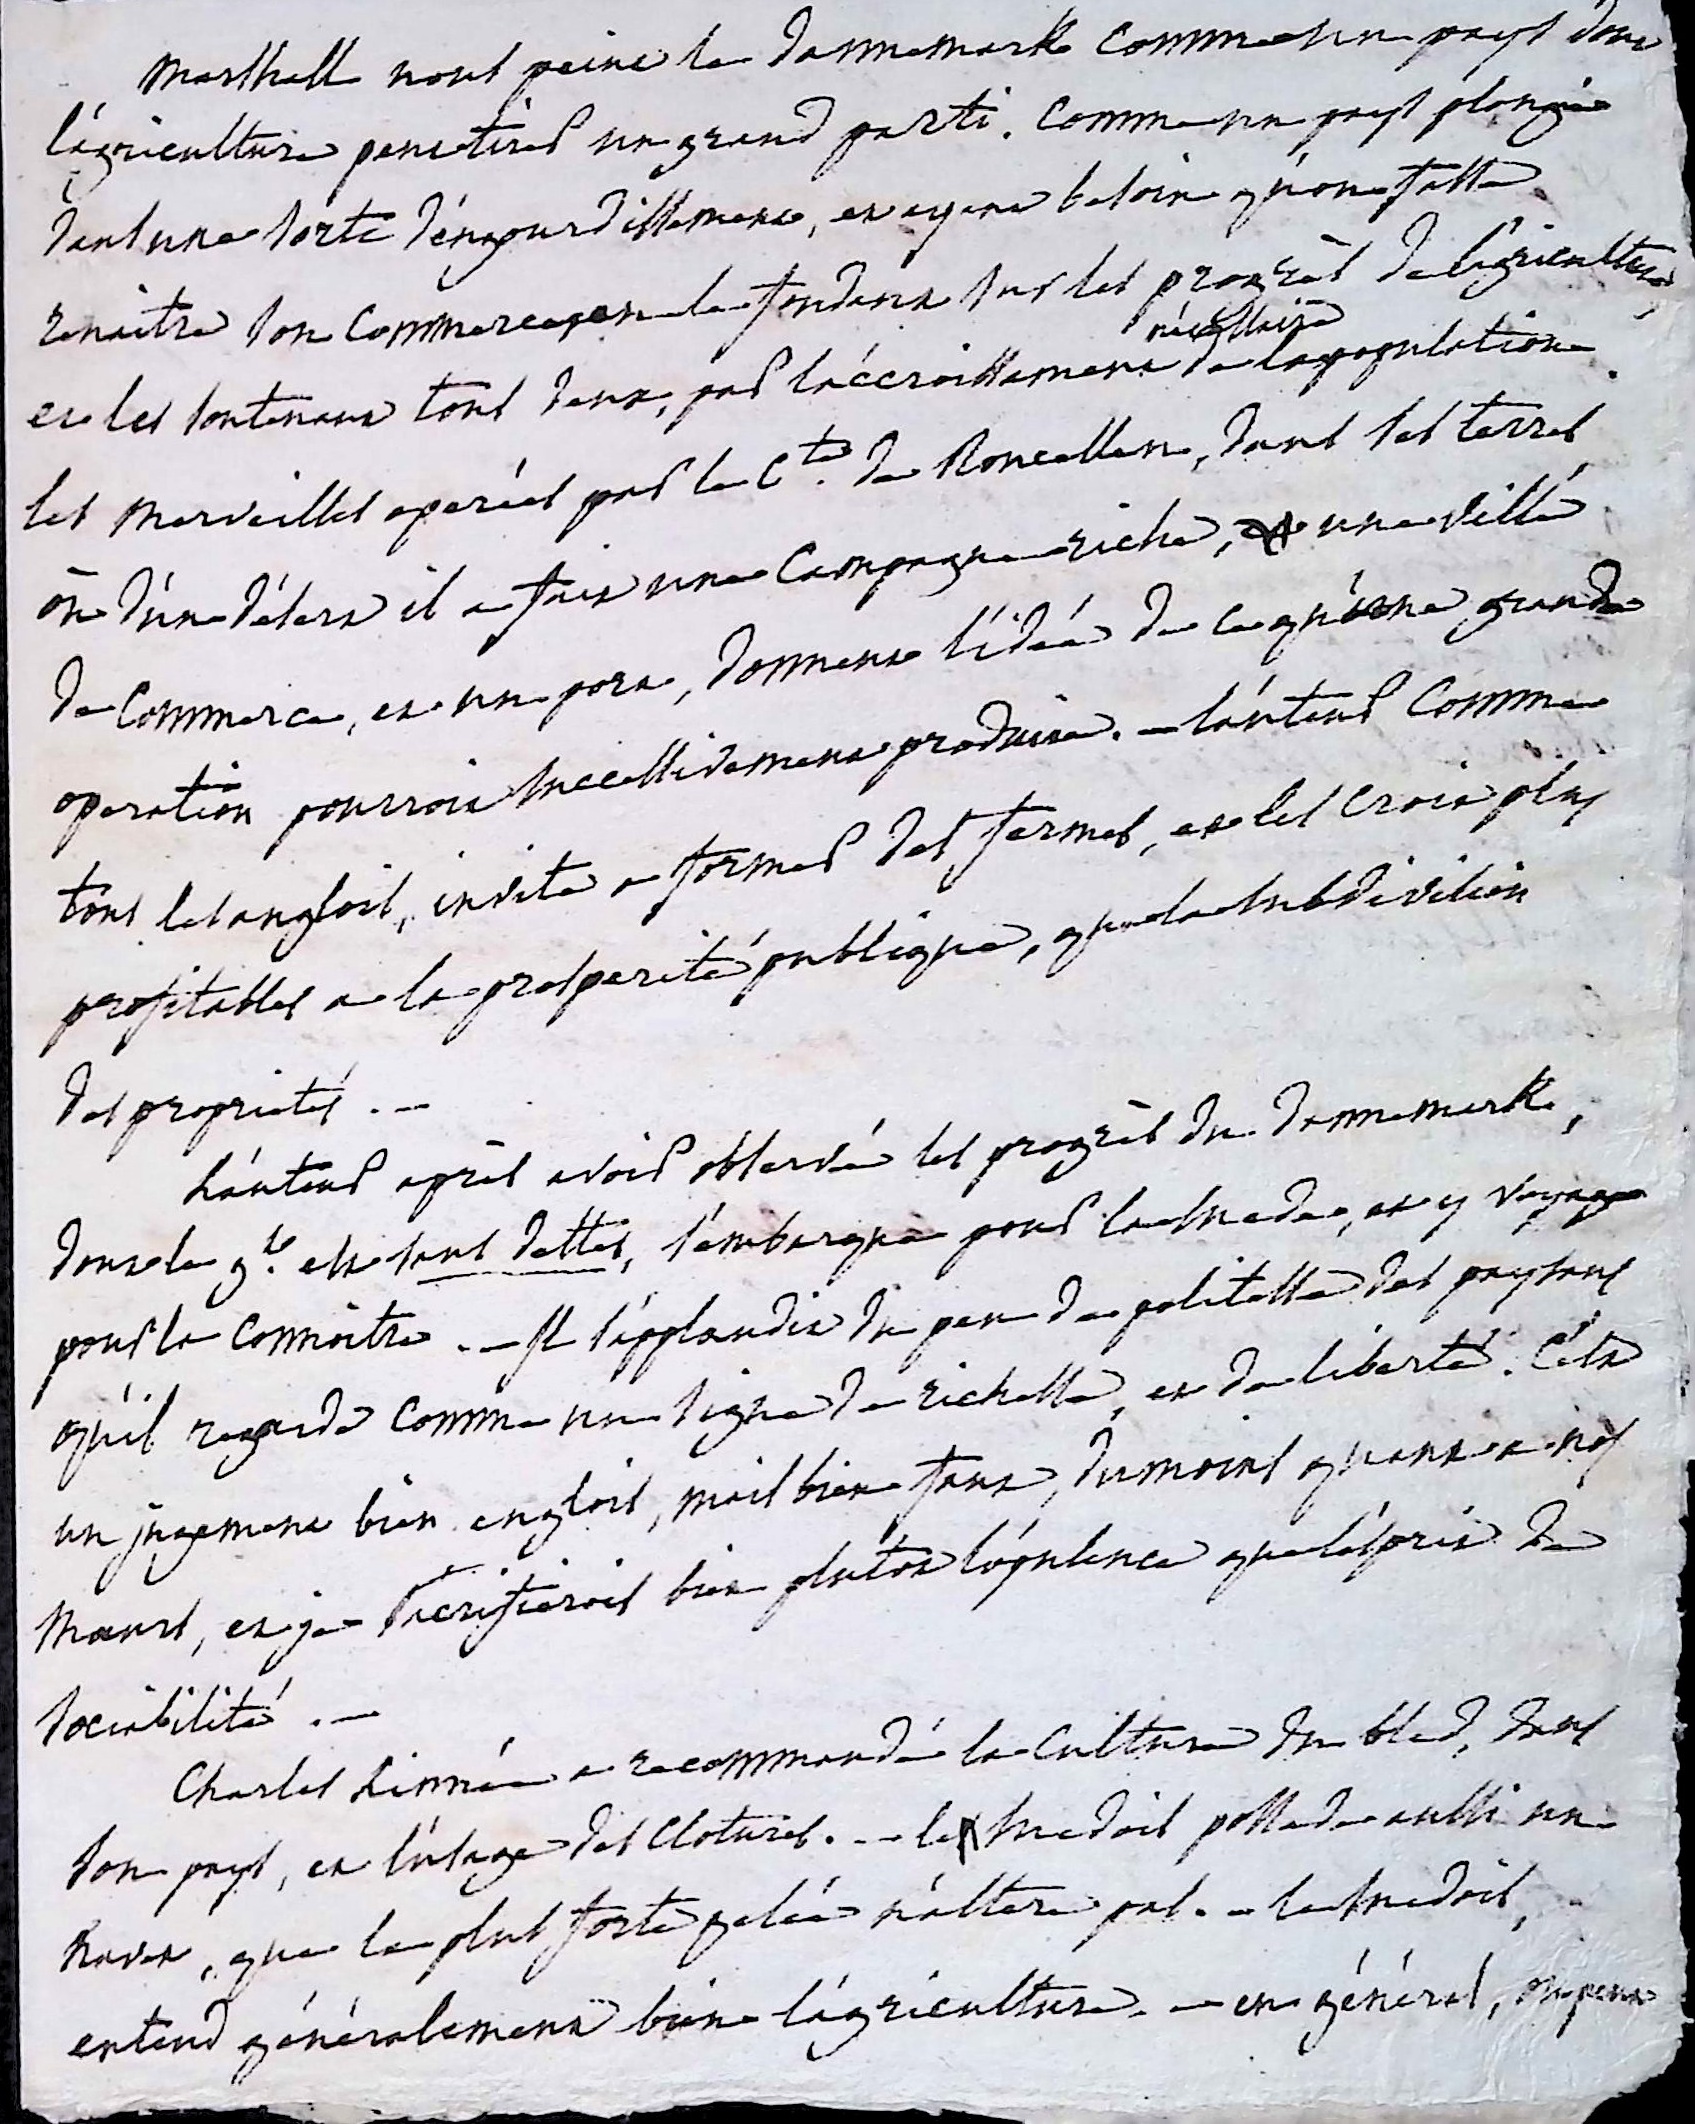 Marshall nous peint le dannemark comme un pays dont
l'ágriculture peut tirer un grand parti. comme un pays plongé
dans une sorte d'éngourdissement, et ayant besoin qu'on fasse
renaitre son commerce, en le fondant sur les progrès de l'agriculture,
nécéssaire
et les soutenant tous deux, par l'áccroissement de la population.
les merveilles operées par le Cte. de Roncellen, dans ses terres
ou d'un désert il a fait une campagne riche, une ville
de commerce, et un port, donnent l'idée de ce qu'une grande
operation pourroit successivement produire. - l'áuteur comme
tous les anglois, invite a former des fermes, et les croit plus
profitables a la prosperité publique, que la subdivision
des proprietés. -
L'áuteur aprìs avoir observé les progrès du dannemark,
dont le gt. est sans dettes, s'embarque pour la suede, et y voyage
pour la connoitre. - Il s'applaudit du peu de politesse des paysans
qu'il regarde comme un signe de richesse, et de liberté. C'est
un jugement bien anglois, mais bien faux, du moins quant a nos
moeurs, et je sacrifierois bien plutôt l'ópulence que l'ésprit de
sociabilité. -
Charles Linnée a recommandé la culture du bled, dans
son pays, et l'úsage des clotures. - le suedois possede aussi un
navet, que la plus forte gelée n'áltere pas. - le suedois,
entend généralement bien l'ágriculture. - en général, on peut